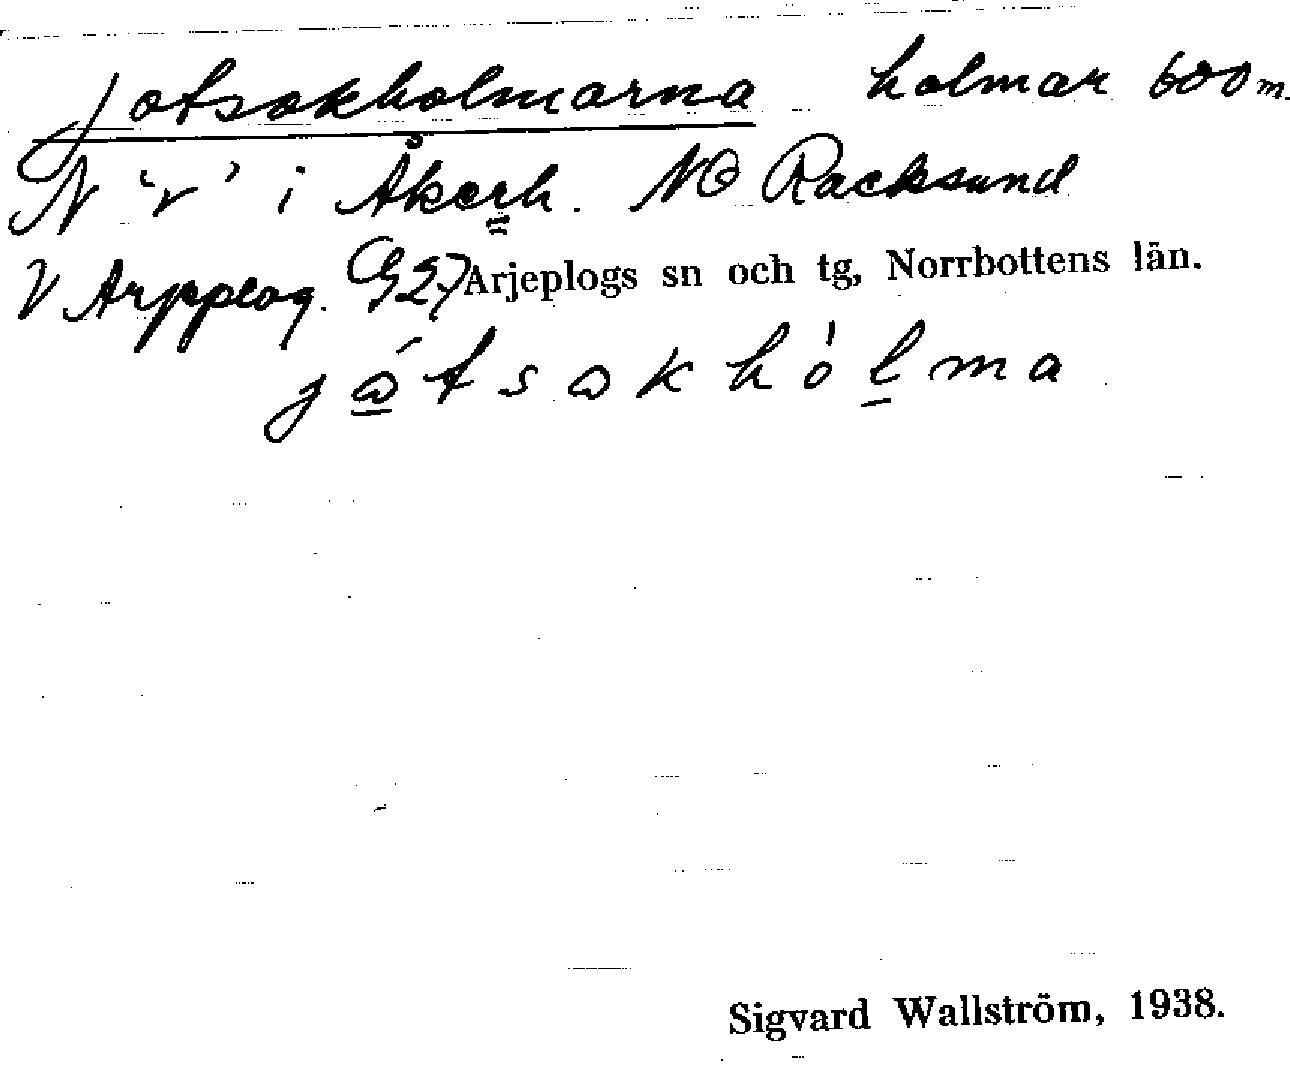 Jotsokholmarna holmar 600 m.
N 'r' i Åkerh. NO Racksund
V Arjeplog. G27 Arjeplogs sn och tg, Norrbottens län.
jɷ́tsɷkhòlma
Sigvard Wallström, 1938.